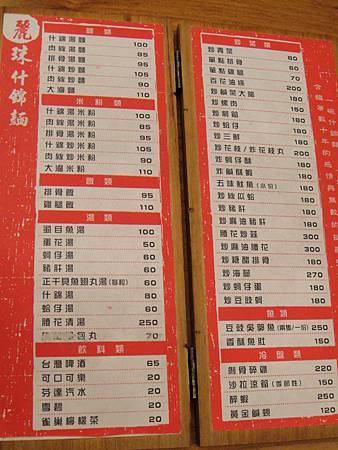 麗
珠什錦麵
麵類
什錦湯麵 100
肉絲湯麵 85
排骨湯麵 85
什錦炒麵 105
肉絲炒麵 90
大滷麵 110
米粉類
什錦湯米粉 100
肉絲湯米粉 85
排骨湯米粉 85
什錦炒米粉 105
肉絲炒米粉 90
大滷米粉 110
飯類
排骨飯 95
雞腿飯 110
湯類
虱目魚湯 100
蛋花湯 50
蚵仔湯 60
豬肝湯 60
正干貝魚翅丸湯 60
什錦湯 80
蛤仔湯 60
腰花清湯 250
丸 70
飲料類
台灣啤酒 65
可口可樂 20
芬達汽水 20
雪碧 20
雀巢檸檬茶 20
炒菜類
炒青菜 60
單點排骨 60
單點雞腿
百花油條
炒鹹菜大腸 200
炒螺肉 150
炒蔥筍 150
炒蛤仔 150
炒三鮮 180
炒花枝/炸花枝丸 200
炸蚵仔酥 180
炸鹹酥蝦 180
五味魷魚(小份) 180
炒絲瓜蛤 180
炒豬肝 180
炒麻油豬肝 180
腰花炒蒜 300
炒麻油腰花 300
炒糖醋排骨 180
炒海蔘 250
炒蚵仔蛋 180
炒豆豉蚵 180
魚類
豆豉吳郭魚(兩隻/一份) 250
香酥魚肚 150
冷盤類
剝骨碎雞 220
沙拉涼筍(季節性) 150
醉蝦 250
黃金鹹蜆 120